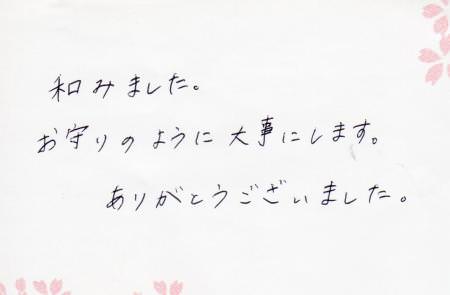 和みました。
お守りのように大事にします。
ありがとうございました。